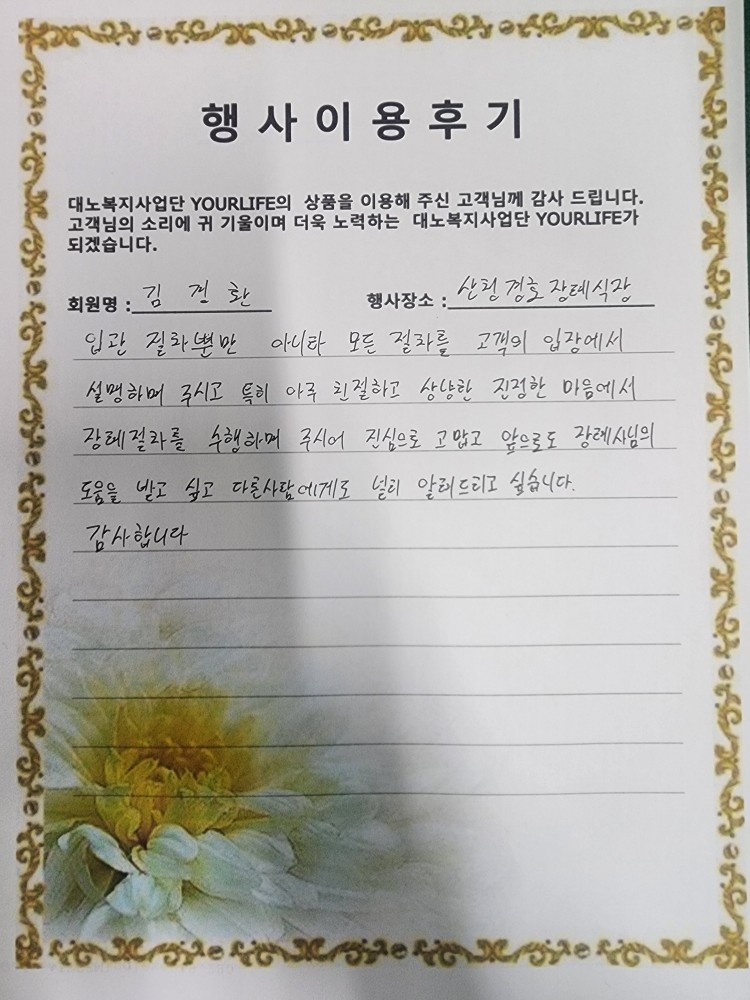 행사이용후기
대노복지사업단 YOURLIFE의 상품을 이용해 주신 고객님께 감사 드립니다.
고객님의 소리에 귀 기울이며 더욱 노력하는 대노복지사업단 YOURLIFE가
되겠습니다.
회원명 : 김 환 행사장소 : 산청경호장례식장
입관 절차뿐만 아니라 모든 절차를 고객의 입장에서
설명하며 주시고 특히 아주 친절하고 상냥한 진정한 마음에서
장례절차를 수행하며 주시어 진심으로 고맙고 앞으로도 장례사님의
도움을 받고 싶고 다른사람에게도 널리 알려드리고 싶습니다.
감사합니다